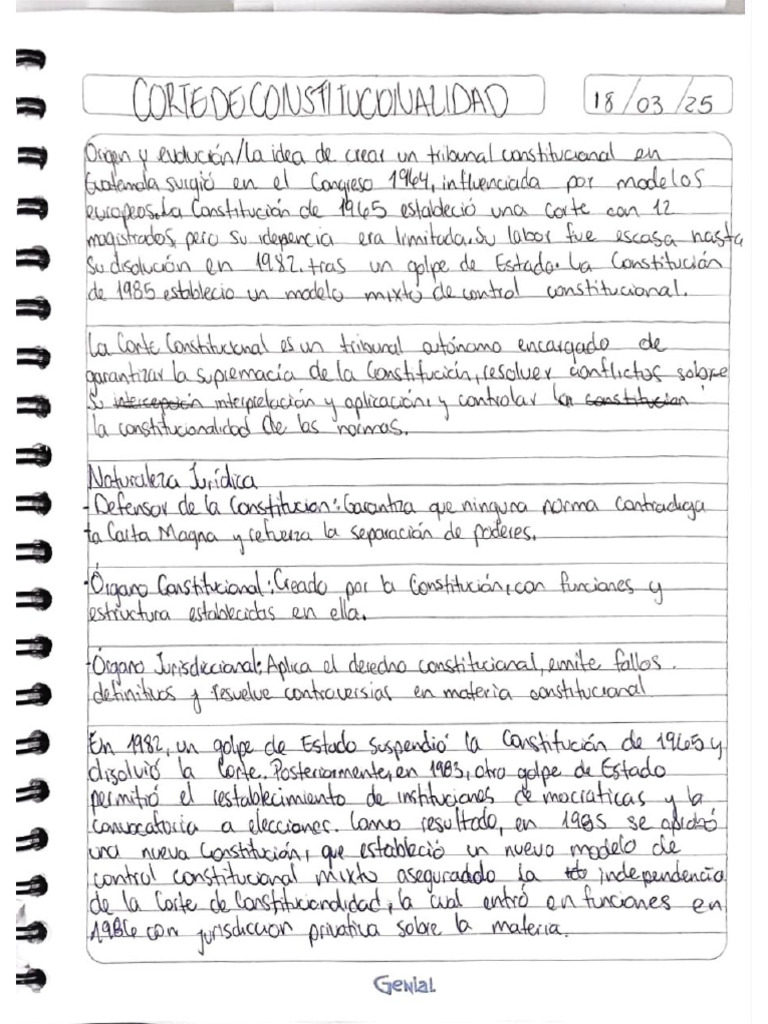 CORTE DE CONSTITUCIONALIDAD
18/03/25
Origen y evolución/La idea de crear un tribunal constitucional en
Guatemala surgió en el Congreso 1964, influenciada por modelos
europeos. La Constitución de 1965 estableció una corte con 12
magistrados, pero su idepencia era limitada. Su labor fue escasa hasta
su disolución en 1982. tras un golpe de Estado. La Constitución
de 1985 establecio un modelo mixto de control constitucional.
La Corte Constitucional es un tribunal autónomo encargado de
garantizar la supremacía de la Constitución, resolver conflictos sobre
su intercepción interpretación y aplicación, y controlar la constitucion
la constitucionalidad de las normas.
Naturaleza Jurídica
- Defensor de la Constitucion: Garantiza que ninguna norma contradiga
la Carta Magna y refuerza la separación de poderes.
- Órgano Constitucional: Creado por la Constitución, con funciones y
estructura establecidas en ella.
- Órgano Jurisdiccional: Aplica el derecho constitucional, emite fallos
definitivos y resuelve controversias en materia constitucional
En 1982, un golpe de Estado suspendió la Constitución de 1965 y
disolvió la Corte. Posteriormente, en 1983, otro golpe de Estado
permitió el restablecimiento de instituciones democráticas y la
convocatoria a elecciones. Como resultado, en 1985 se aprobó
una nueva Constitución, que estableció un nuevo modelo de
control constitucional mixto asegurando la independencia
de la Corte de Constitucionalidad, la cual entró en funciones en
1986 con jurisdiccion privativa sobre la materia.
Genial